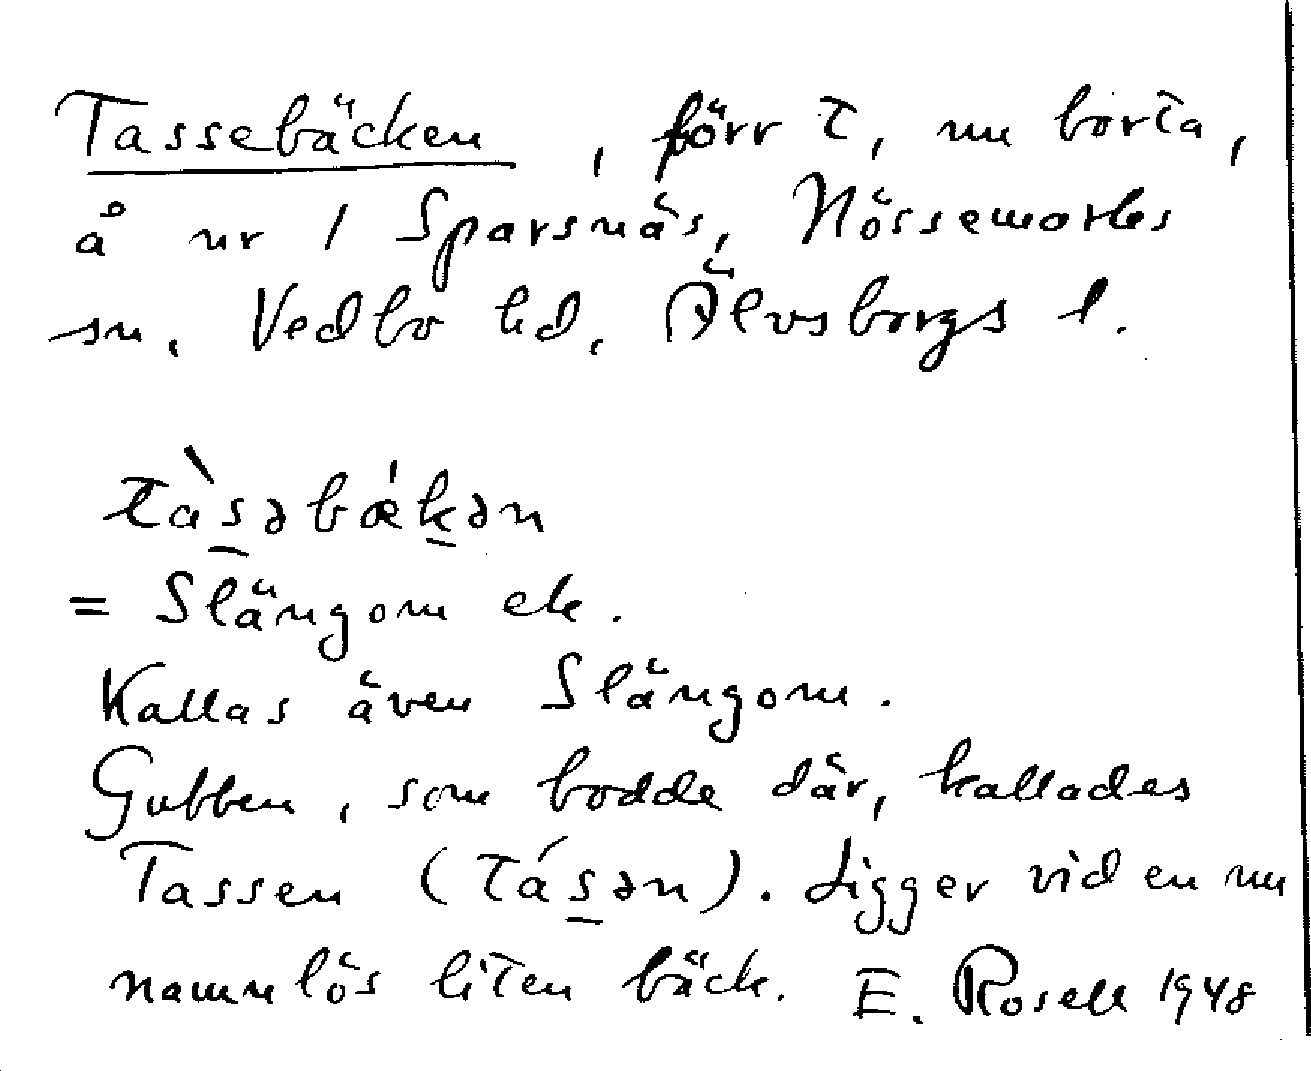 Tassebäcken, förr t, nu borta,
å nr 1 Sparsnäs, Nössemarks
sn, Vedbo hd, Älvsborgs l.
tàsəbǽkən
= Slängom ek.
Kallas även Slängom.
Gubben, som bodde där, kallades
Tassen (tásən). Ligger vid en nu
namnlös liten bäck. E. Rosell 1948